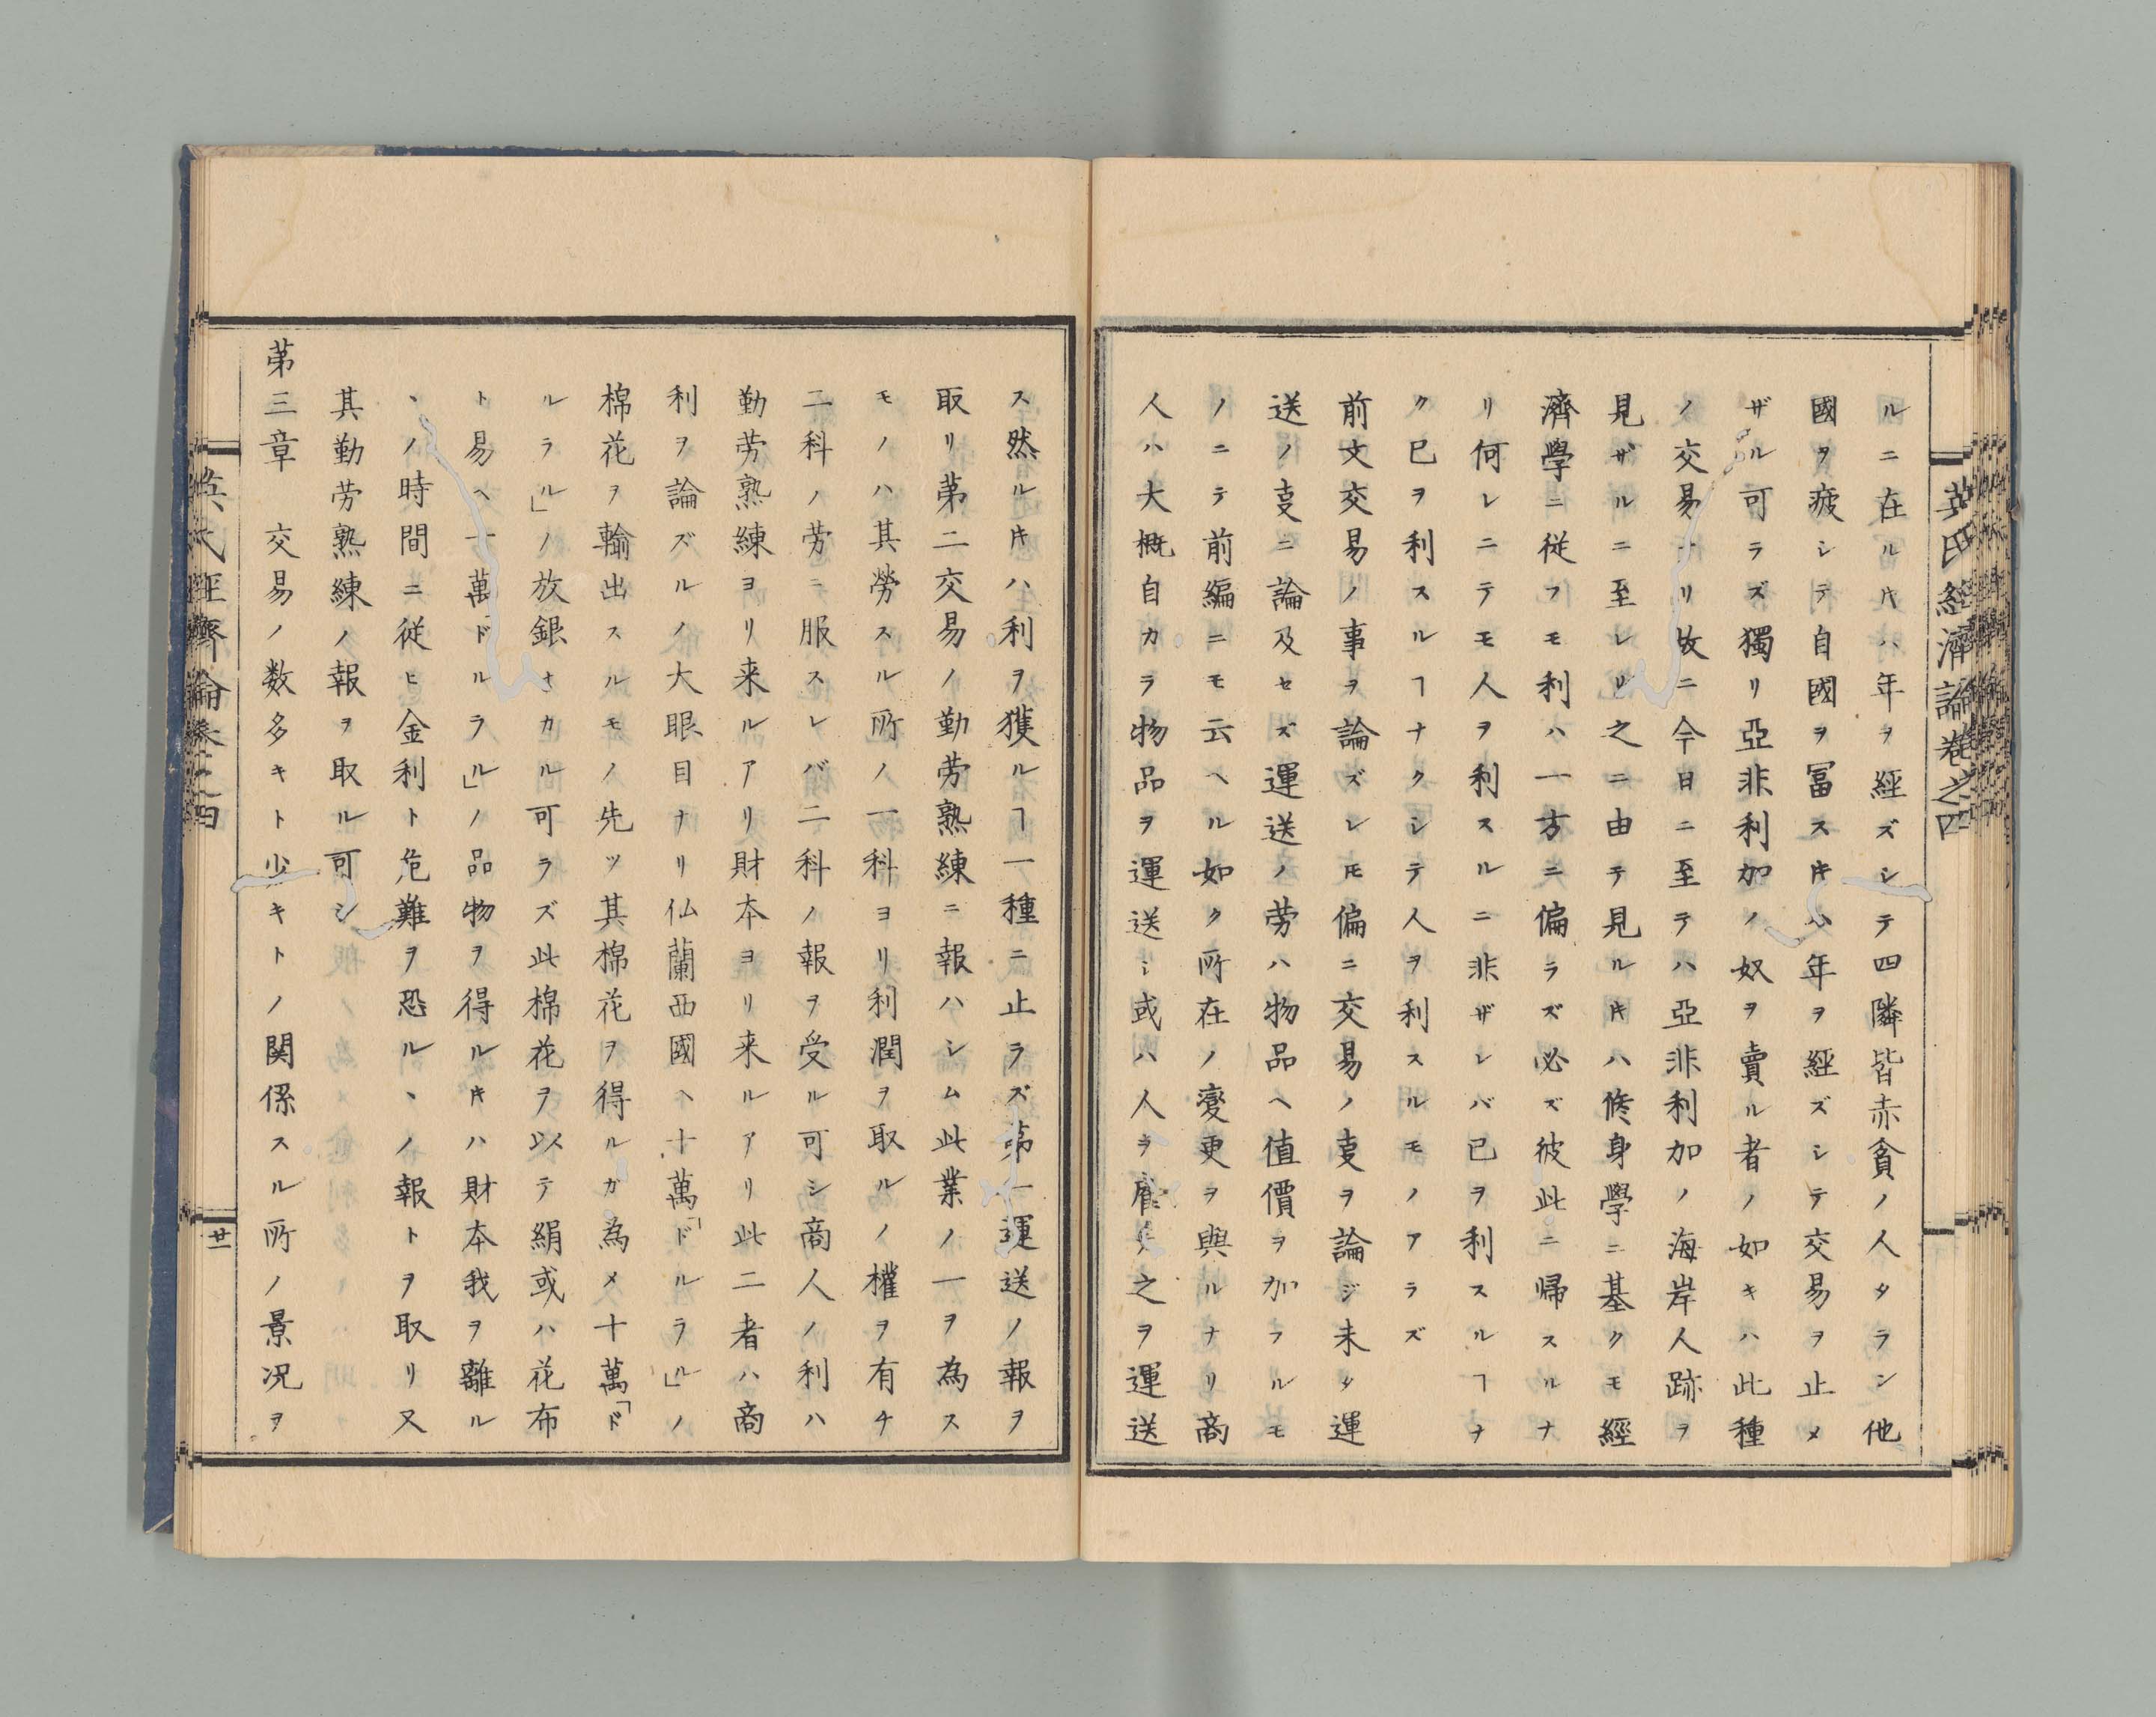 英氏經濟論卷之四
ルニ在ルㇳキハ年ヲ經ズシテ四隣皆赤貧ノ人タラン他
國ヲ疲シテ自國ヲ冨スㇳキハ年ヲ經ズシテ交易ヲ止メ
ザル可ラズ獨リ亞非利加ノ奴ヲ賣ル者ノ如キハ此種
ノ交易ナリ故ニ今日ニ至テハ亞非利加ノ海岸人跡ヲ
見ザルニ至レリ之ニ由テ見ルㇳキハ修身學ニ基クモ經
濟學ニ従フモ利ハ一方ニ偏ラズ必ズ彼此ニ帰スルナ
リ何レニテモ人ヲ利スルニ非ザレバ己ヲ利スルヿナ
ク已ヲ利スルヿナクシテ人ヲ利スルモノアラズ
前文交易ノ事ヲ論ズレㇳモ偏ニ交易ノ㕝ヲ論ジ未タ運
送ノ㕝ニ論及セズ運送ノ劳ハ物品ヘ値價ヲ加フルモ
ノニテ前編ニモ云ヘル如ク所在ノ變更ヲ與ルナリ商
人ハ大概自カラ物品ヲ運送シ或ハ人ヲ雇テ之ヲ運送
ス然ルㇳキハ利ヲ獲ルヿ一種ニ止ラズ苐一運送ノ報ヲ
取リ苐二交易ノ勤劳熟練ニ報ハシム此業ノ一ヲ為ス
モノハ其勞スル所ノ一科ヨリ利潤ヲ取ルノ權ヲ有チ
二科ノ劳ニ服スレバ二科ノ報ヲ受ル可シ商人ノ利ハ
勤劳熟練ヨリ来ルアリ財本ヨリ来ルアリ此二者ハ商
利ヲ論ズルノ大眼目ナリ仏蘭西國ヘ十萬「ドルラル」ノ
棉花ヲ輸出スルモノ先ツ其棉花ヲ得ルガ為メ十萬「ド
ルラル」ノ放銀ナカル可ラズ此棉花ヲ以テ絹或ハ花布
ト易ヘ十萬「ドルラル」ノ品物ヲ得ルㇳキハ財本我ヲ離ル
ヽノ時間ニ従ヒ金利ト危難ヲ恐ルヽノ報トヲ取リ又
其勤劳熟練ノ報ヲ取ル可シ
苐三章　交易ノ数多キト少キトノ関係スル所ノ景况ヲ
英氏經濟論卷之四
廿一